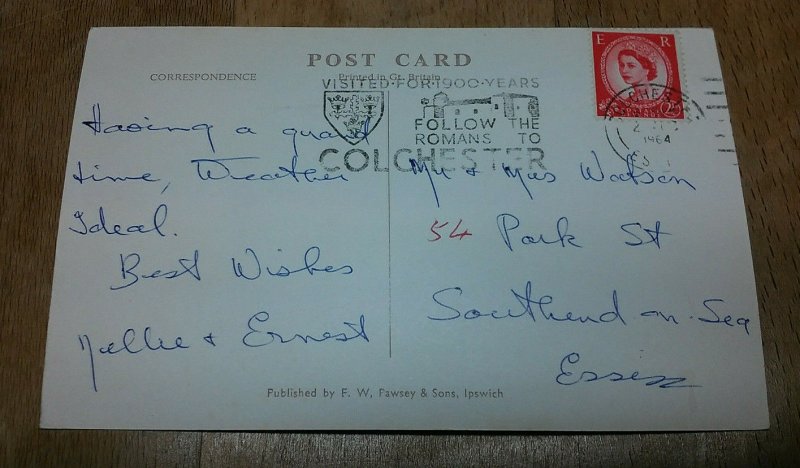 POST CARD
CORRESPONDENCE
Printed in Gt. Britain
VISITED·FOR·1900·YEARS
FOLLOW THE
ROMANS TO
COLCHESTER
E R
1964
Having a grand
time, Weather
Ideal.
Best Wishes
Nellie & Ernest
Mr & Mrs Watson
54 Park St
Southend-on-Sea
Essex
Published by F. W. Pawsey & Sons, Ipswich